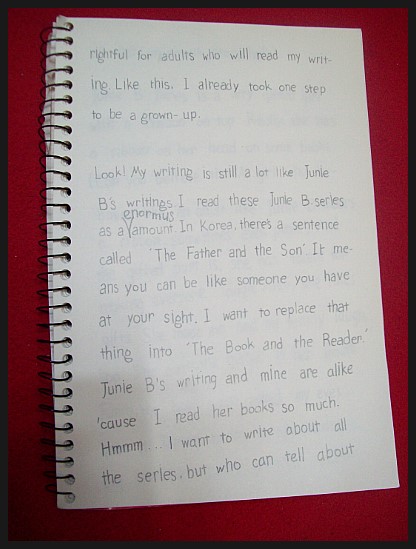 rightful for adults who will read my writ-
ing. Like this. I already took one step
to be a grown-up.
Look! My writing is still a lot like Junie
B's writings. I read these Junie B. series
enormus
as a amount. In Korea, there's a sentence
called 'The Father and the Son'. It me-
ans you can be like someone you have
at your sight. I want to replace that
thing into 'The Book and the Reader.'
Junie B's writing and mine are alike
'cause I read her books so much.
Hmmm... I want to write about all
the series, but who can tell about